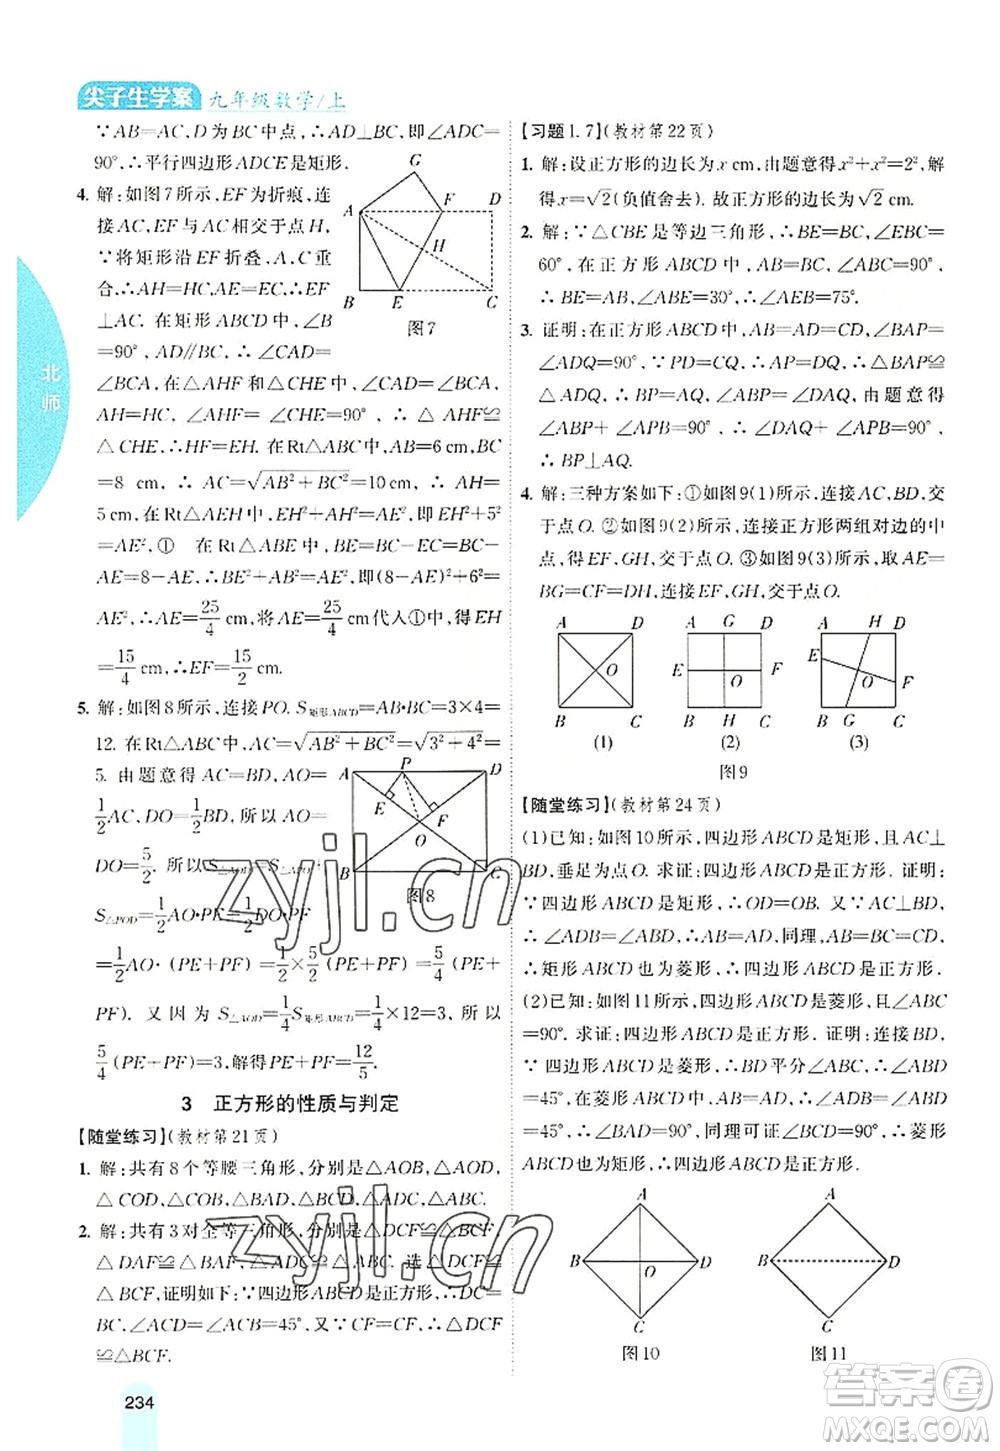 尖子生学案 九年级数学/上
北师
∵AB=AC,D为BC中点,∴AD⊥BC,即∠ADC=
90°,∴平行四边形ADCE是矩形.
4. 解:如图7所示,EF为折痕,连
接AC,EF与AC相交于点H,
∵将矩形沿EF折叠,A,C重
合,∴AH=HC,∴AE=CE,EF
⊥AC. 在矩形ABCD中,∠B
=90°,AD∥BC,∴∠CAF=
∠BCA. 在△AHF和△CHE中,∠CAF=∠BCA,
AH=HC,∠AHF=∠CHE=90°,∴△AHF≌
△CHE.∴HF=EH. 在Rt△ABC中,AB=6 cm,BC
=8 cm,∴AC=√(AB²+BC²)=10 cm,∴AH=
5 cm,在Rt△AEH中,EH²+AH²=AE²,即EH²+5²
=AE²,① 在Rt△ABE中,AB²+BE²=AE²,∵BE
=8-AE,∴AB²+(BC-AE)²=AE²,即6²+(8-
AE)²=AE²,∴AE=25/4 cm,将AE=25/4 cm代人①得EH
=15/4 cm,∴EF=15/2 cm.
A G F D H B E C
图7
5. 解:如图8所示,连接PO. S矩形ABCD=AB·BC=3×4=
12. 在Rt△ABC中,AC=√(AB²+BC²)=√(3²+4²)=
5. 由题意得AC=BD,AO=
1/2AC=1/2BD=1/2×5=5/2,
DO=5/2. 所以S△AOD=S△AOP+
S△POD=1/2AO·PE+1/2DO·PF=
1/2AO·(PE+PF)=1/2×5/2(PE+
PF). 又因为S△AOD=1/4S矩形ABCD=1/4×12=3,所以
5/4(PE+PF)=3,解得PE+PF=12/5.
A P D E F O B C
图8
3 正方形的性质与判定
【随堂练习】(教材第21页)
1. 解:共有8个等腰三角形,分别是△AOB,△AOD,
△COD,△COB,△BAD,△BCD,△ADC,△ABC.
2. 解:共有3对全等三角形,分别是△DCF≌△BCF,
△DAF≌△BAF,△DAC≌△BAC. 选△DCF≌
△BCF,证明如下:∵四边形ABCD是正方形,∴BC=
DC,∠BCA=∠DCA=45°,又∵CF=CF,∴△DCF
≌△BCF.
【习题1.7】(教材第22页)
1. 解:设正方形的边长为x cm,由题意得x²+x²=2²,解
得x=√2(负值舍去). 故正方形的边长为√2 cm.
2. 解:∵△CBE是等边三角形,∴BE=BC,∠EBC=
60°,在正方形ABCD中,AB=BC,∠ABC=90°,
∴AB=BE,∠ABE=30°,∴∠AEB=75°.
3. 证明:在正方形ABCD中,AB=AD=CD,∠BAP=
∠ADQ=90°. ∵PD=CQ,∴AP=DQ,∴△BAP≌
△ADQ,∴∠ABP=∠DAQ. ∵∠BAP=90°,
∴∠ABP+∠APB=90°,∴∠DAQ+∠APB=90°,
∴BP⊥AQ.
4. 解:三种方案如下:①如图9(1)所示,连接AC,BD,交
于点O. ②如图9(2)所示,连接正方形两组对边的中
点,得EF,GH,交于点O. ③如图9(3)所示,取AE=
BG=CF=DH,连接EF,GH,交于点O.
A D O B C
A G D E F O B H C
A H D E F O B G C
(1) (2) (3)
图9
【随堂练习】(教材第24页)
(1)已知:如图10所示,四边形ABCD是矩形,且AC⊥
BD,垂足为点O. 求证:四边形ABCD是正方形. 证明:
∵四边形ABCD是矩形,∴OD=OB. 又∵AC⊥BD,
∴AC垂直平分BD,∴AB=AD,同理,AB=BC,
∴矩形ABCD也为菱形,∴四边形ABCD是正方形.
(2)已知:如图11所示,四边形ABCD是菱形,且∠ABC
=90°. 求证:四边形ABCD是正方形. 证明:连接BD,
∵四边形ABCD是菱形,∴BD平分∠ABC,∴∠ABD
=45°,在菱形ABCD中,AB=AD,∴∠ABD=∠ADB
=45°,∴∠BAD=90°,同理可证∠C=90°,∴菱形
ABCD也为矩形,∴四边形ABCD是正方形.
A B O D C
图10
A B D C
图11
234
zyjl.cn
zyjl.cn
答案圈
MXQE.COM